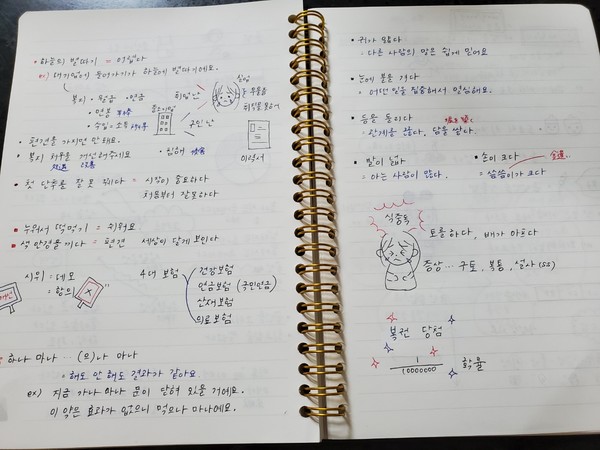 • 하늘의 별따기 = 어렵다
ex) 대기업에 들어가기가 하늘에 별따기예요.
복지 · 월급 · 연금
· 연봉
· 수입 = 소득
취업난
구인난
실업
이력서
• 편견을 가지면 안 해요.
• 복지
• 침해
• 첫 단추를 잘 못 끼다 = 시작이 중요하다
처음부터 잘못하다
• 누워서 떡먹기 = 쉬워요
• 색안경을 끼다 = 편견 세상이 달게 보인다
시위 = 데모
= 항의
X
4대 보험
건강보험
연금보험 (국민연금)
산재보험
의료보험
하나 마나 … (으)나 마나
= 해도 안 해도 결과가 같아요.
ex) 지금 가나 마나 문이 닫혀 있을 거예요.
이 약은 효과가 없으니 먹으나 마나예요.
• 귀가 얇다
: 다른 사람의 말은 쉽게 믿어요
• 눈에 불을 켜다
: 어떤 일을 집중해서 열심해요.
• 등을 돌리다
: 관계를 끊다, 담을 쌓다.
• 발이 넓다
= 아는 사람이 많다.
• 손이 크다
= 씀씀이가 크다
식중독
토를 하다, 배가 아프다
증상 … 구토, 복통, 설사 (ss)
복권 당첨
1
10000000
확률